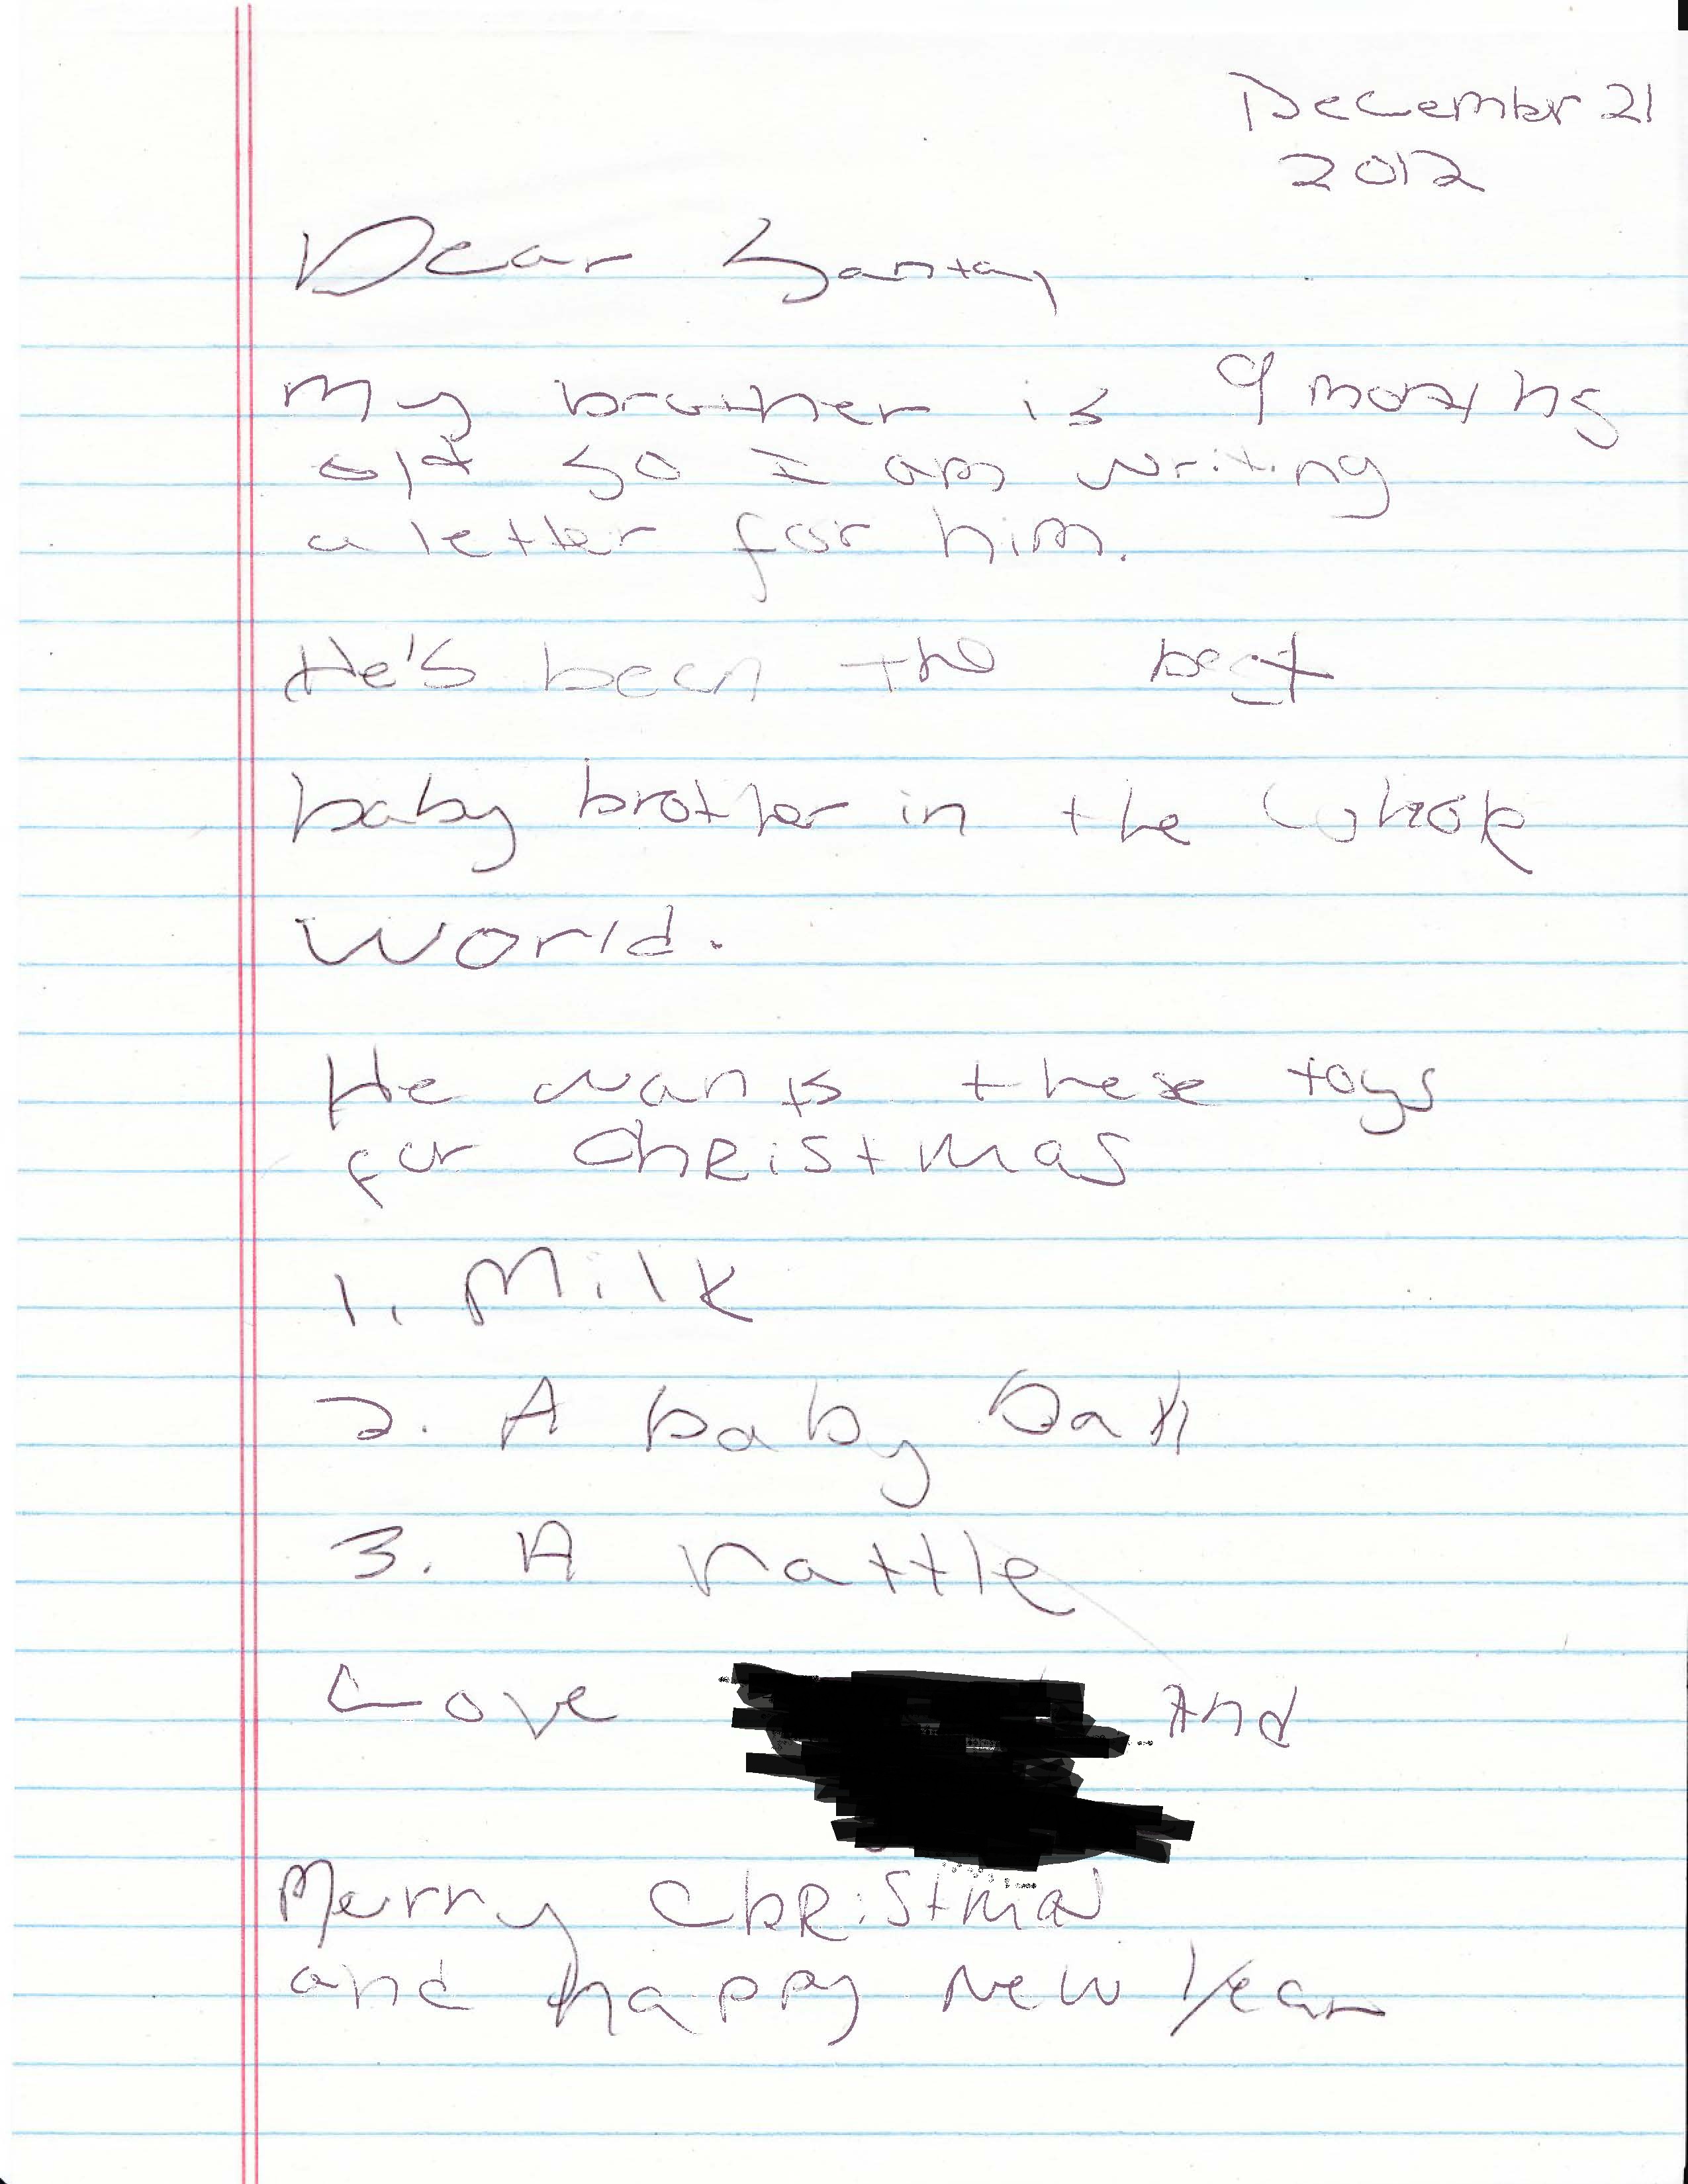 December 21
2012
Dear Santa,
My brother is 9 months
old so I am writing
a letter for him.
He's been the best
baby brother in the whole
world.
He wants these toys
for Christmas
1. Milk
2. A baby ball
3. A rattle
Love And
Merry Christmas
and happy New Year